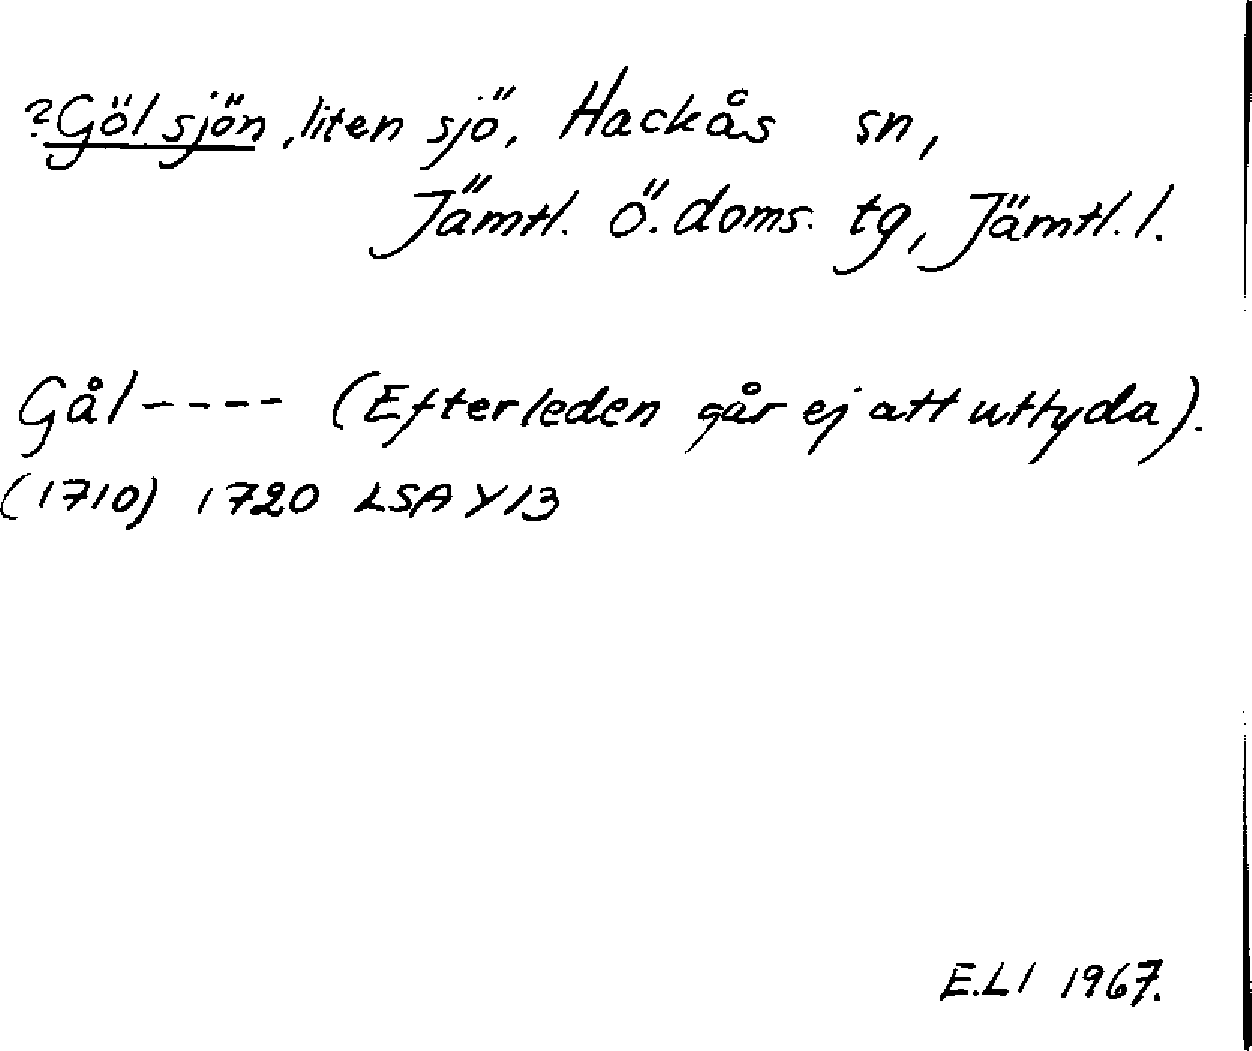 ?Göl sjön, liten sjö, Hackås sn,
Jämtl. ö. doms. tg, Jämtl. l.
Gål---- (Efterleden går ej att uttyda).
(1710) 1720 LSA Y13
E.LI 1967.